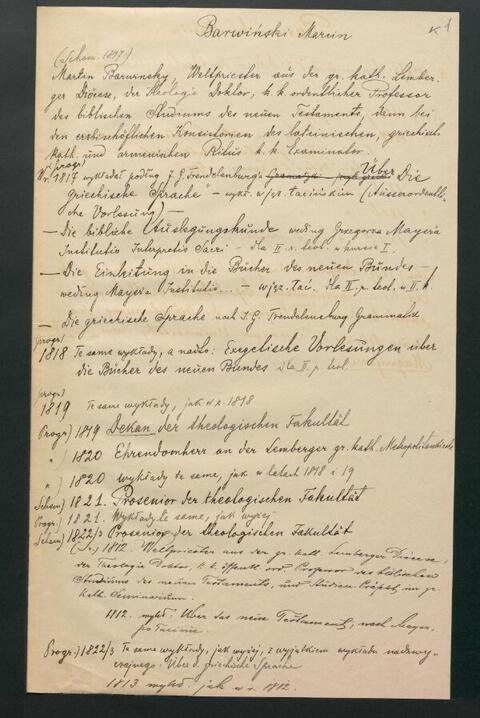 Barwiński Marcin
K 1
(Schem. 1817)
Martin Barwinsky, Weltpriester aus der gr. kath. Lember-
ger Diözese, der Theologie Doktor, k. k. ordentlicher Professor
des biblischen Studiums des neuen Testaments, dann bei
den erzbischöflichen Konsistorien des lateinischen, griechisch
kath. und armenischen Ritus k. k. Examinator.
(progr.)
W r. 1817 wykładał podług J. G. Trendelenburga Über Die
Griechische Sprache" – wykł. w jęz. łacińskim (Ausserordentli-
che Vorlesung)
– Die biblische Auslegungskunde według Grzegorza Mayera
Institutio Interpretis Sacri – dla II r. teol. w kursie I.
– Die Einleitung in die Bücher des neuen Bundes –
według Mayera Institutio... – w jęz. łać. dla II r. teol. w II k.
– Die griechische Sprache nach J. G. Trendelenburg Grammatik
progr)
1818 Te same wykłady, a nadto: Exegetische Vorlesungen über
die Bücher des neuen Bundes dla II r. teol.
progr)
1819 Te same wykłady, jak w r. 1818
Progr) 1819 Dekan der theologischen Fakultät
") 1820 Ehrendomherr an der Lemberger gr. kath. Metropolitankirche
") 1820 wykłady te same, jak w latach 1818 i 19
Schem) 1821. Prosenior der theologischen Fakultät
Progr.) 1821. Wykłady te same, jak wyżej
Schem) 1822/3 Prosenior der theologischen Fakultät
1812. Weltpriester aus der gr. kath. Lemberger Diözese,
der Theologie Doktor, k. k. öffentl. ord. Professor des biblischen
Studiums des neuen Testaments, und Studien Präfekt im gr.
kath. Seminarium.
1812. wykł. Über das neue Testament, nach Mayer.
po łacinie.
Progr.) 1822/3 Te same wykłady, jak wyżej, z wyjątkiem wykładu nadzwy-
czajnego Über d. griechische Sprache
1813 wykł. jak w r. 1812.